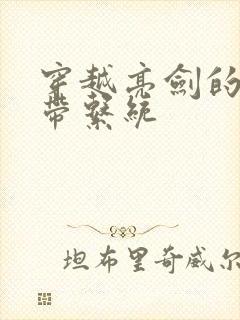 穿越亮劍的
帶繫統
坦布里奇威尔